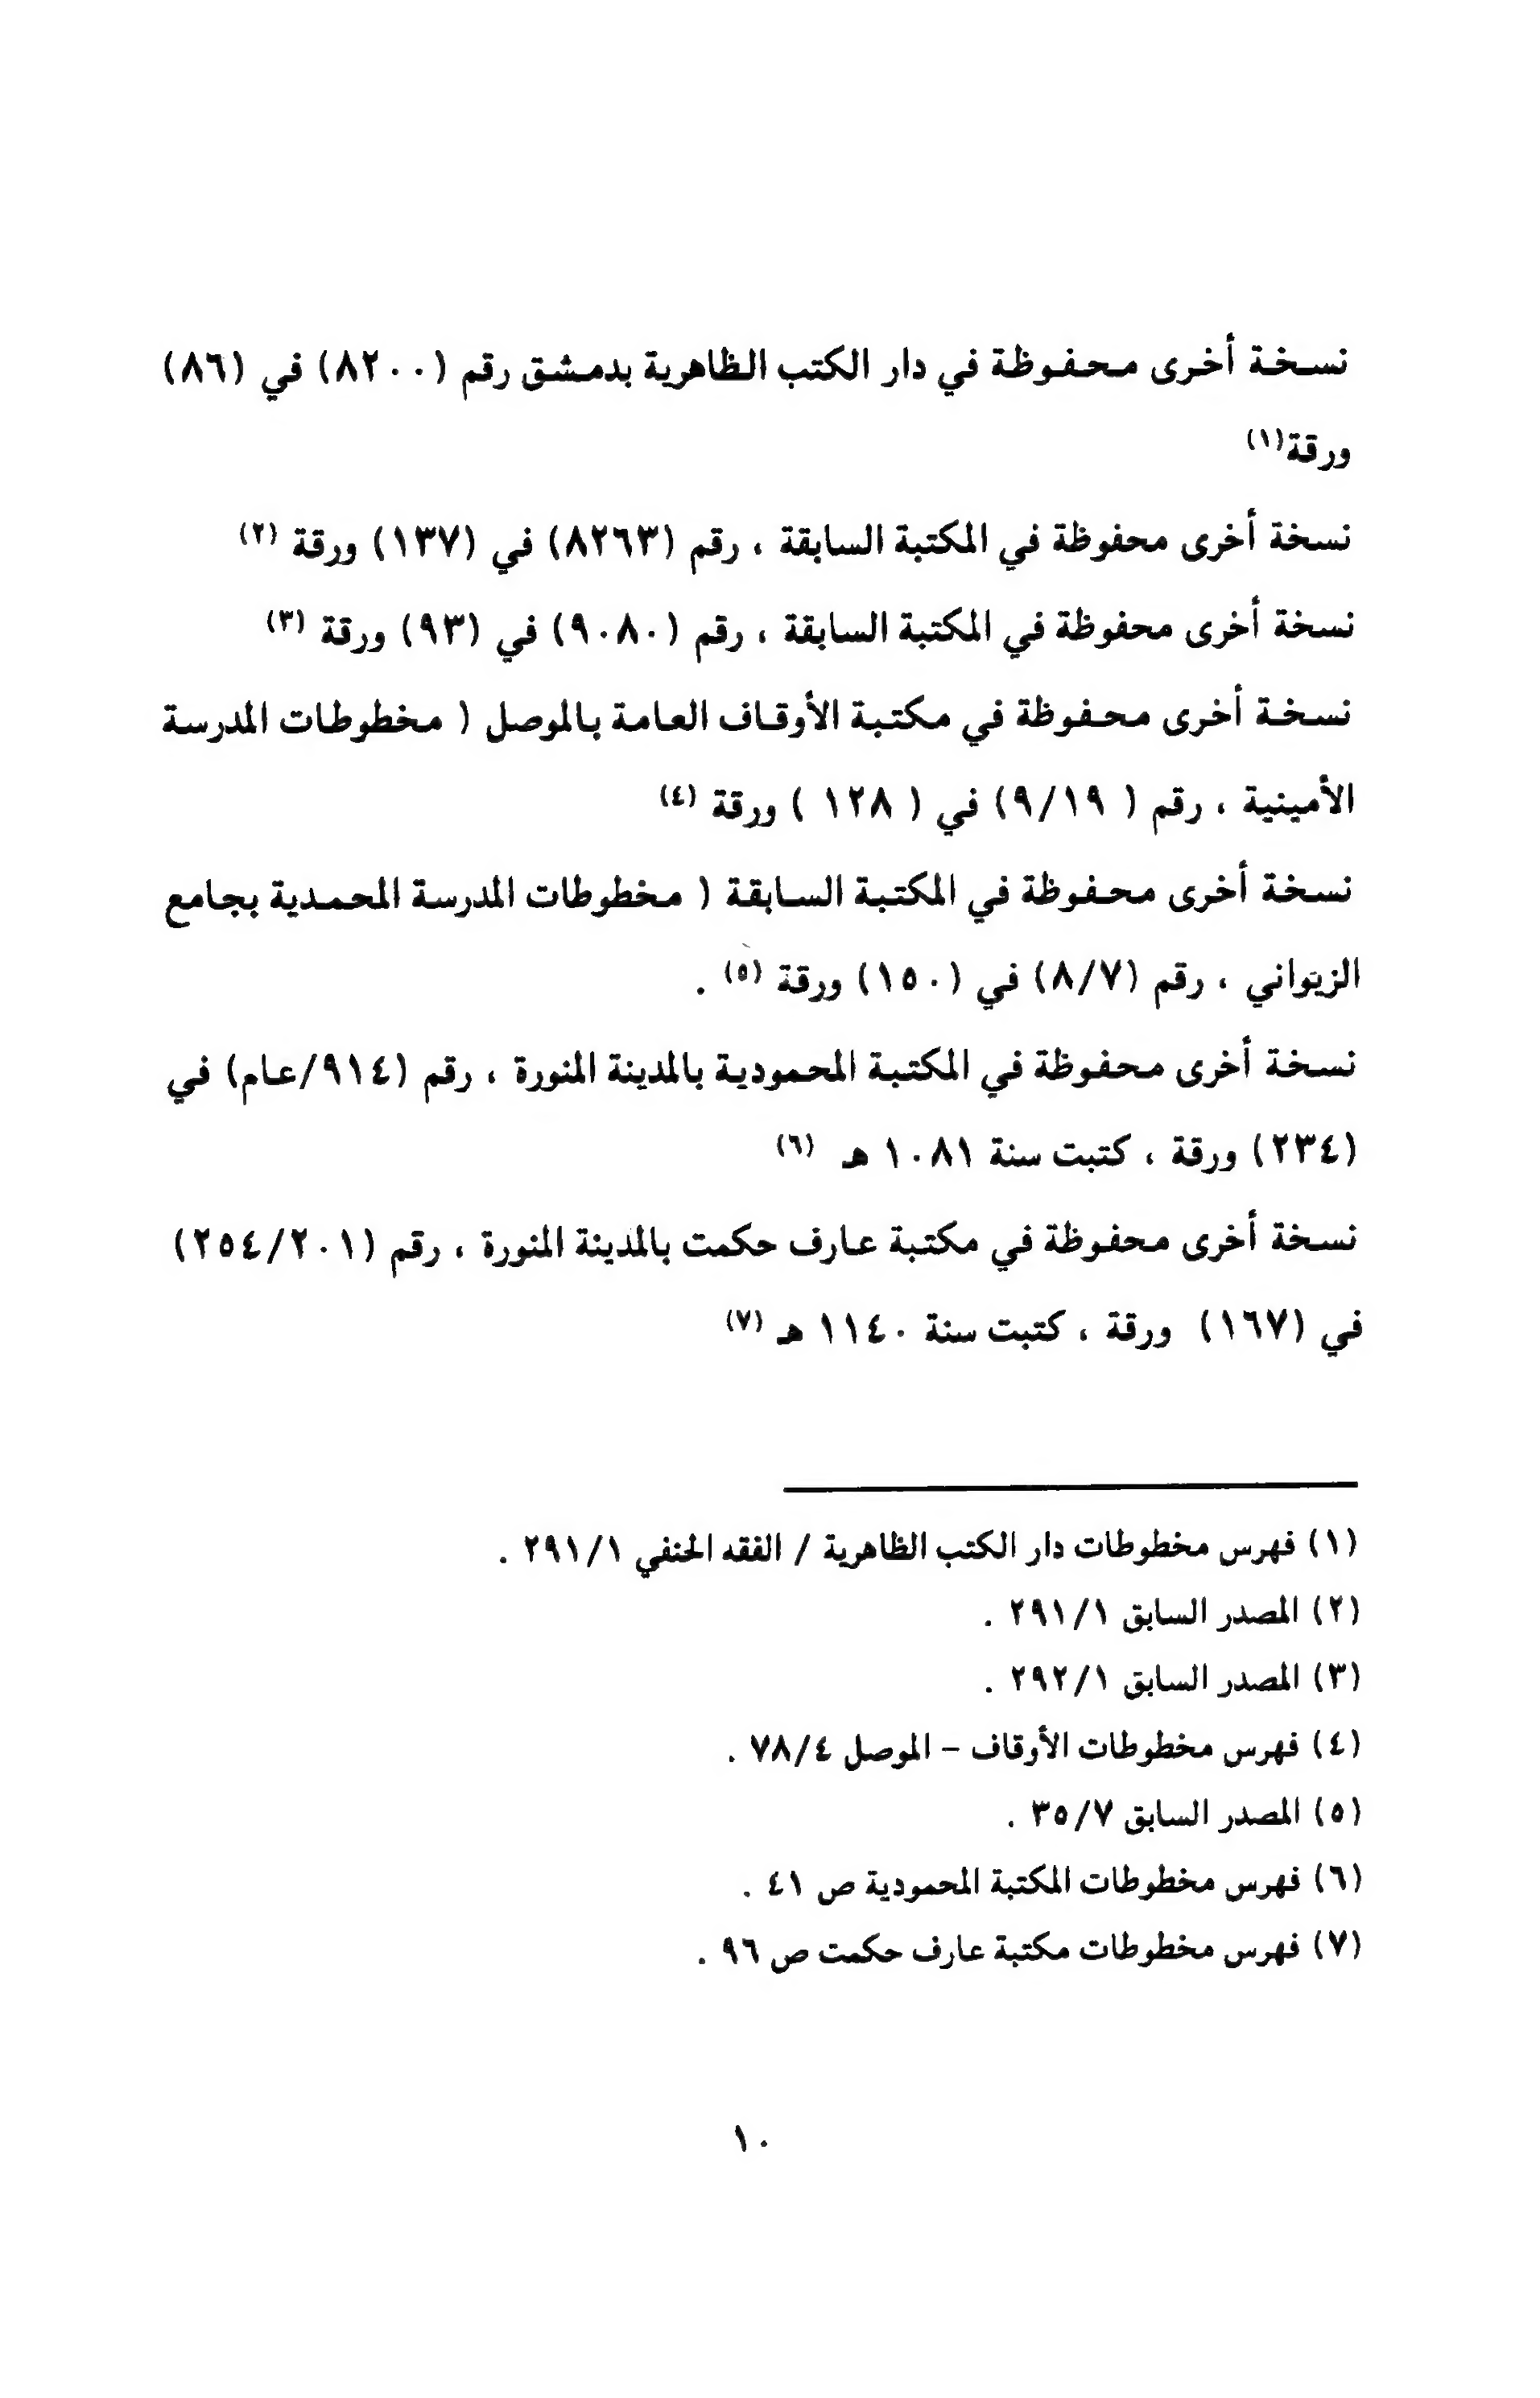 نسخة أخرى محفوظة في دار الكتب الظاهرية بدمشق رقم (٨٢٠٠) في (٨٦)
ورقة(١)
نسخة أخرى محفوظة في المكتبة السابقة ، رقم (٨٢٦٣) في (١٣٧) ورقة (٢)
نسخة أخرى محفوظة في المكتبة السابقة ، رقم (٩٠٨٠) في (٩٣) ورقة (٣)
نسخة أخرى محفوظة في مكتبة الأوقاف العامة بالموصل ( مخطوطات المدرسة
الأمينية ، رقم ( ٩/١٩) في ( ١٢٨ ) ورقة (٤)
نسخة أخرى محفوظة في المكتبة السابقة ( مخطوطات المدرسة المحمدية بجامع
الزيواني ، رقم (٨/٧) في (١٥٠) ورقة (٥) .
نسخة أخرى محفوظة في المكتبة المحمودية بالمدينة المنورة ، رقم (٩١٤/عام) في
(٢٣٤) ورقة ، كتبت سنة ١٠٨١ هـ (٦)
نسخة أخرى محفوظة في مكتبة عارف حكمت بالمدينة المنورة ، رقم (٢٥٤/٢٠١)
في (١٦٧) ورقة ، كتبت سنة ١١٤٠ هـ (٧)
(١) فهرس مخطوطات دار الكتب الظاهرية / الفقه الحنفي ٢٩١/١ .
(٢) المصدر السابق ٢٩١/١ .
(٣) المصدر السابق ٢٩٢/١ .
(٤) فهرس مخطوطات الأوقاف – الموصل ٧٨/٤ .
(٥) المصدر السابق ٣٥/٧ .
(٦) فهرس مخطوطات المكتبة المحمودية ص ٤١ .
(٧) فهرس مخطوطات مكتبة عارف حكمت ص ٩٦ .
١٠